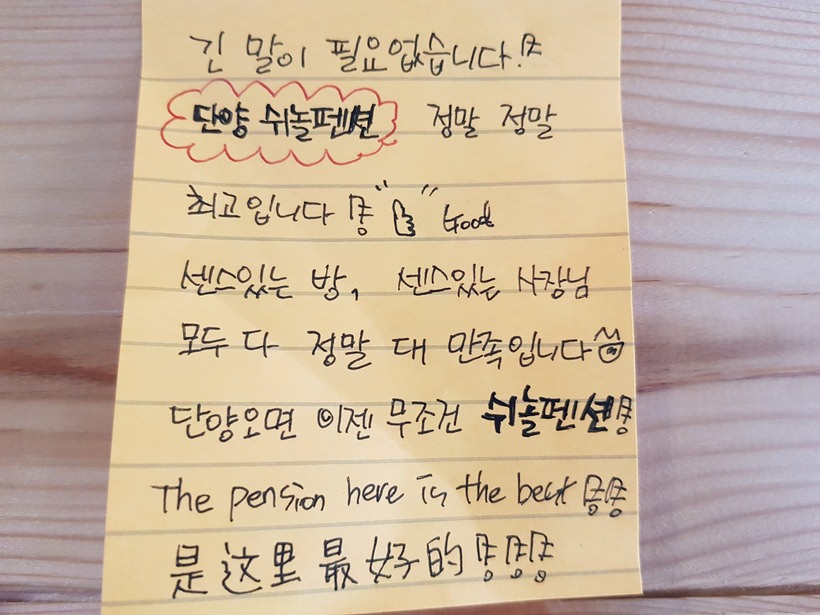 긴 말이 필요없습니다!!
단양 쉬놀펜션 정말 정말
최고입니다! " " Good
센스있는 방, 센스있는 사장님
모두 다 정말 대 만족입니다
단양오면 이젠 무조건 쉬놀펜션!
The pension here is the best!!
是这里最好的!!!